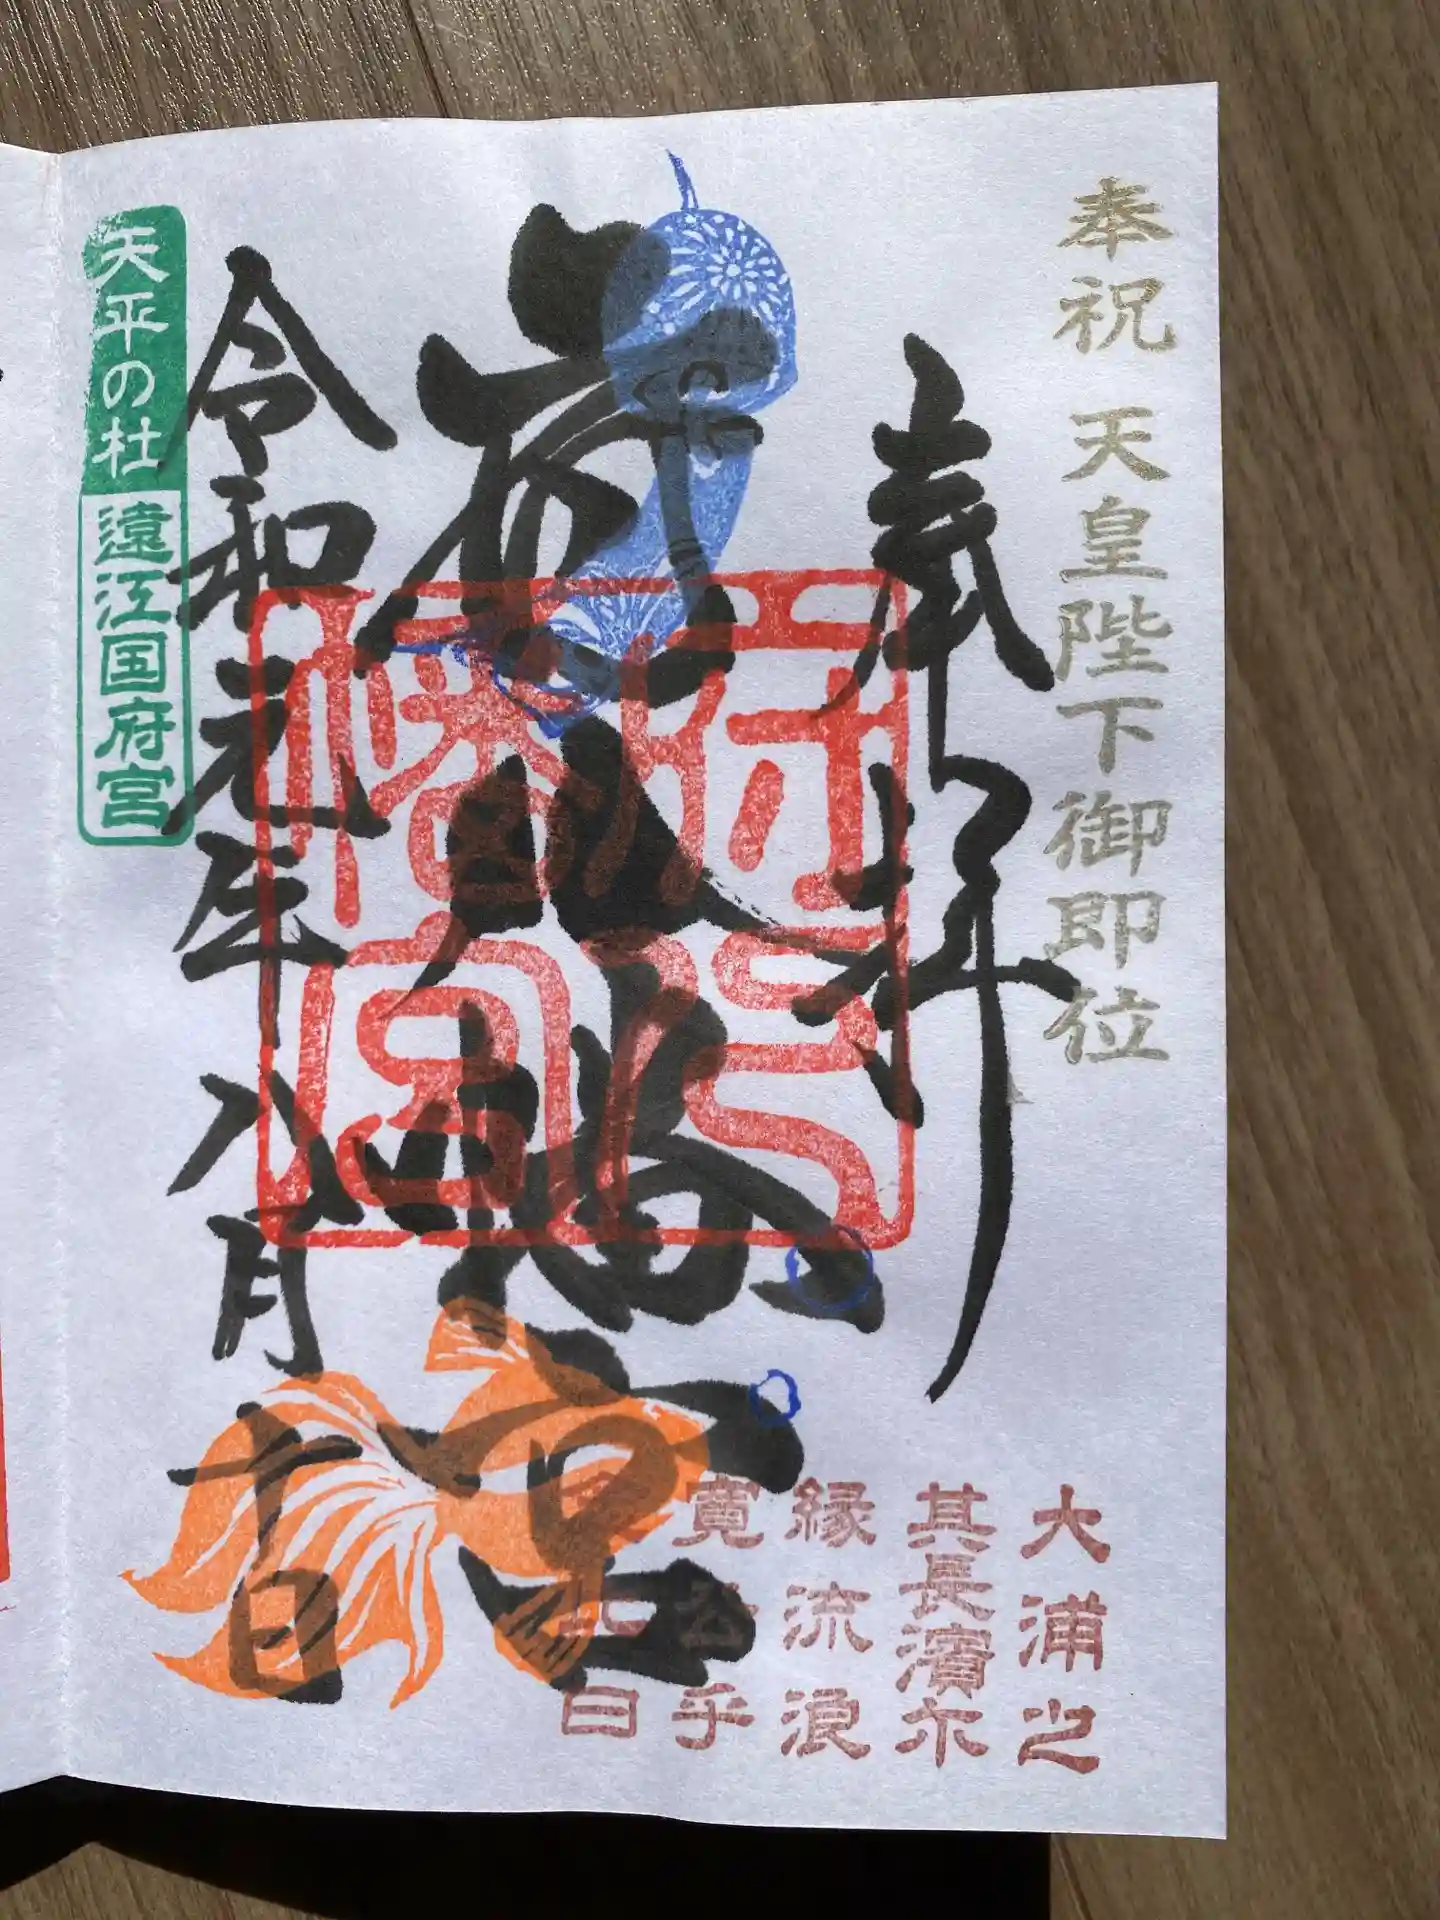 奉祝 天皇陛下御即位
奉拝
府八幡宮
令和元年八月十日
天平の杜
遠江国府宮
大浦之
其長濱尓
縁流浪
寛公乎
念比日